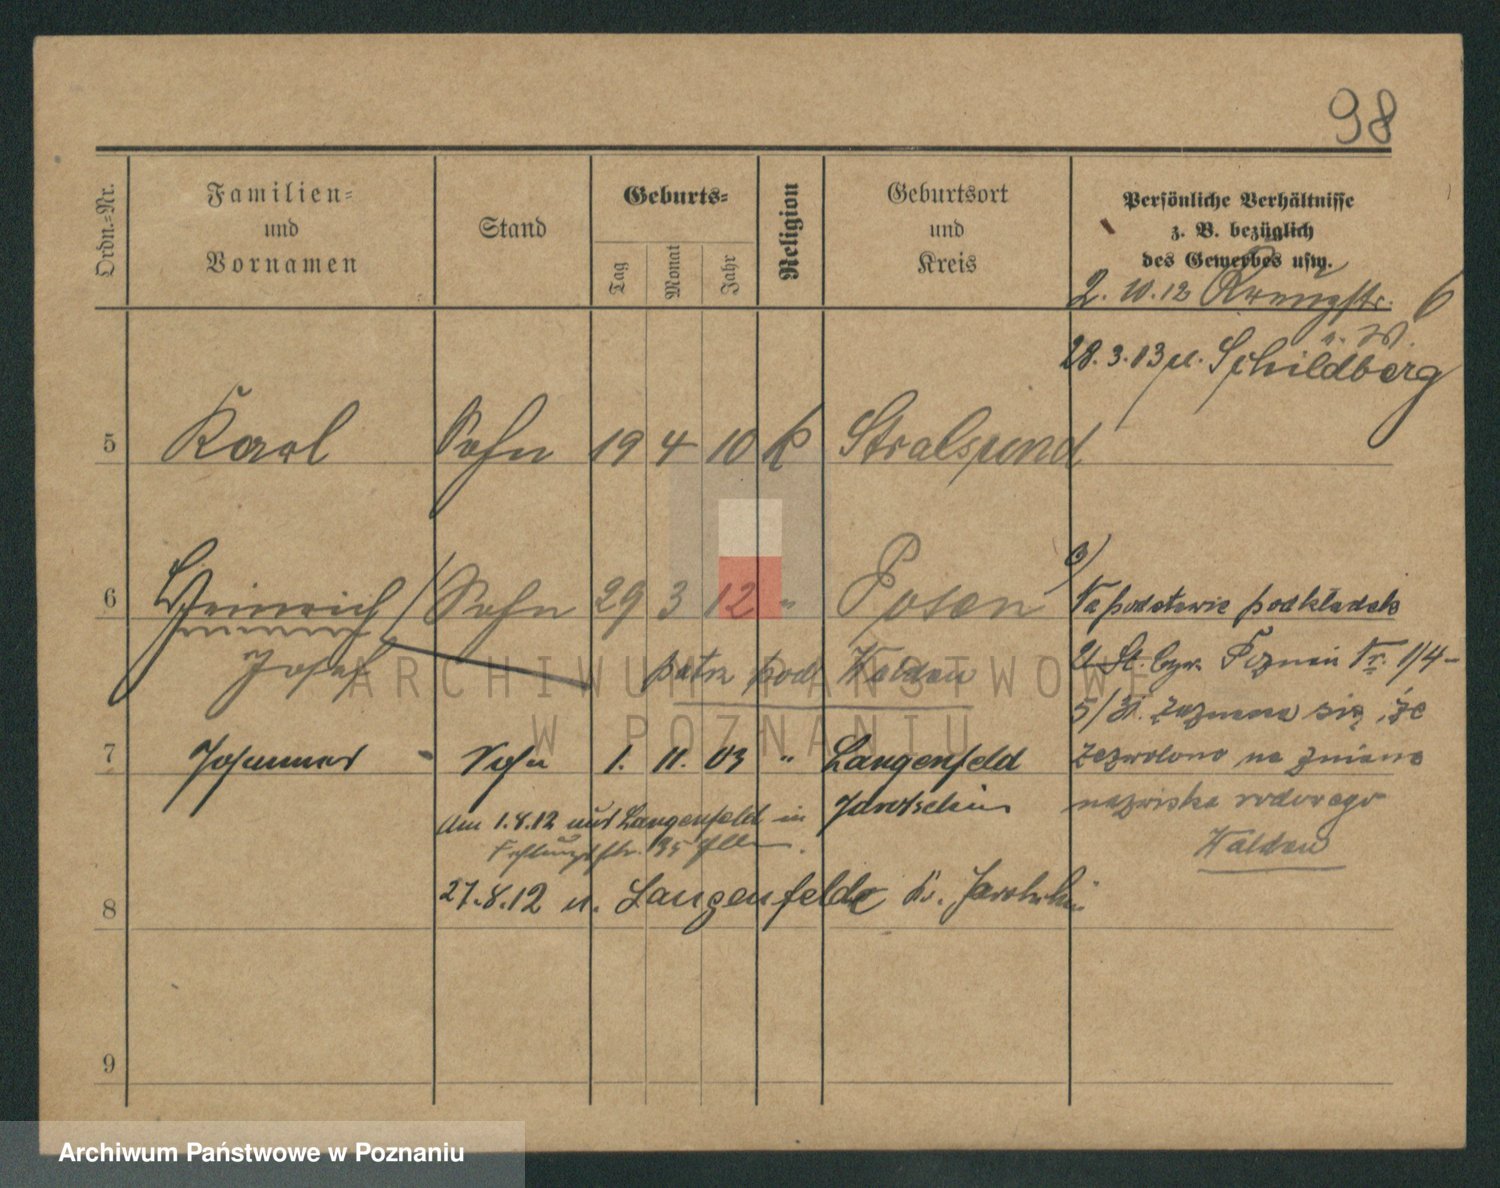 98
Ordn.-Nr.
Familien-
und
Vornamen
Stand
Geburts-
Tag
Monat
Jahr
Religion
Geburtsort
und
Kreis
Persönliche Verhältnisse
z. B. bezüglich
des Gewerbes usw.
2. 10. 12 Kreuzstr. 6
28.3.13 n. Schildberg
5 Karl Sohn 19 4 10 k Stralsund
6 Heinrich Sohn 29 3 12 " Posen
Josef patrz pod Waldau
7 Johannes Sohn 1. 11. 03 " Langenfeld
Jarotschin
Am 1.8.12 aus Langenfeld in
27.8.12 n. Langenfelde Kr. Jarotschin
8
9
3)
Na podstawie podkładek
U. St. Cyw. Poznań Nr. 1/4-
5/ zaznacza się, że
zezwolono na zmianę
nazwiska rodowego
Waldau
ARCHIWUM PAŃSTWOWE
W POZNANIU
Archiwum Państwowe w Poznaniu